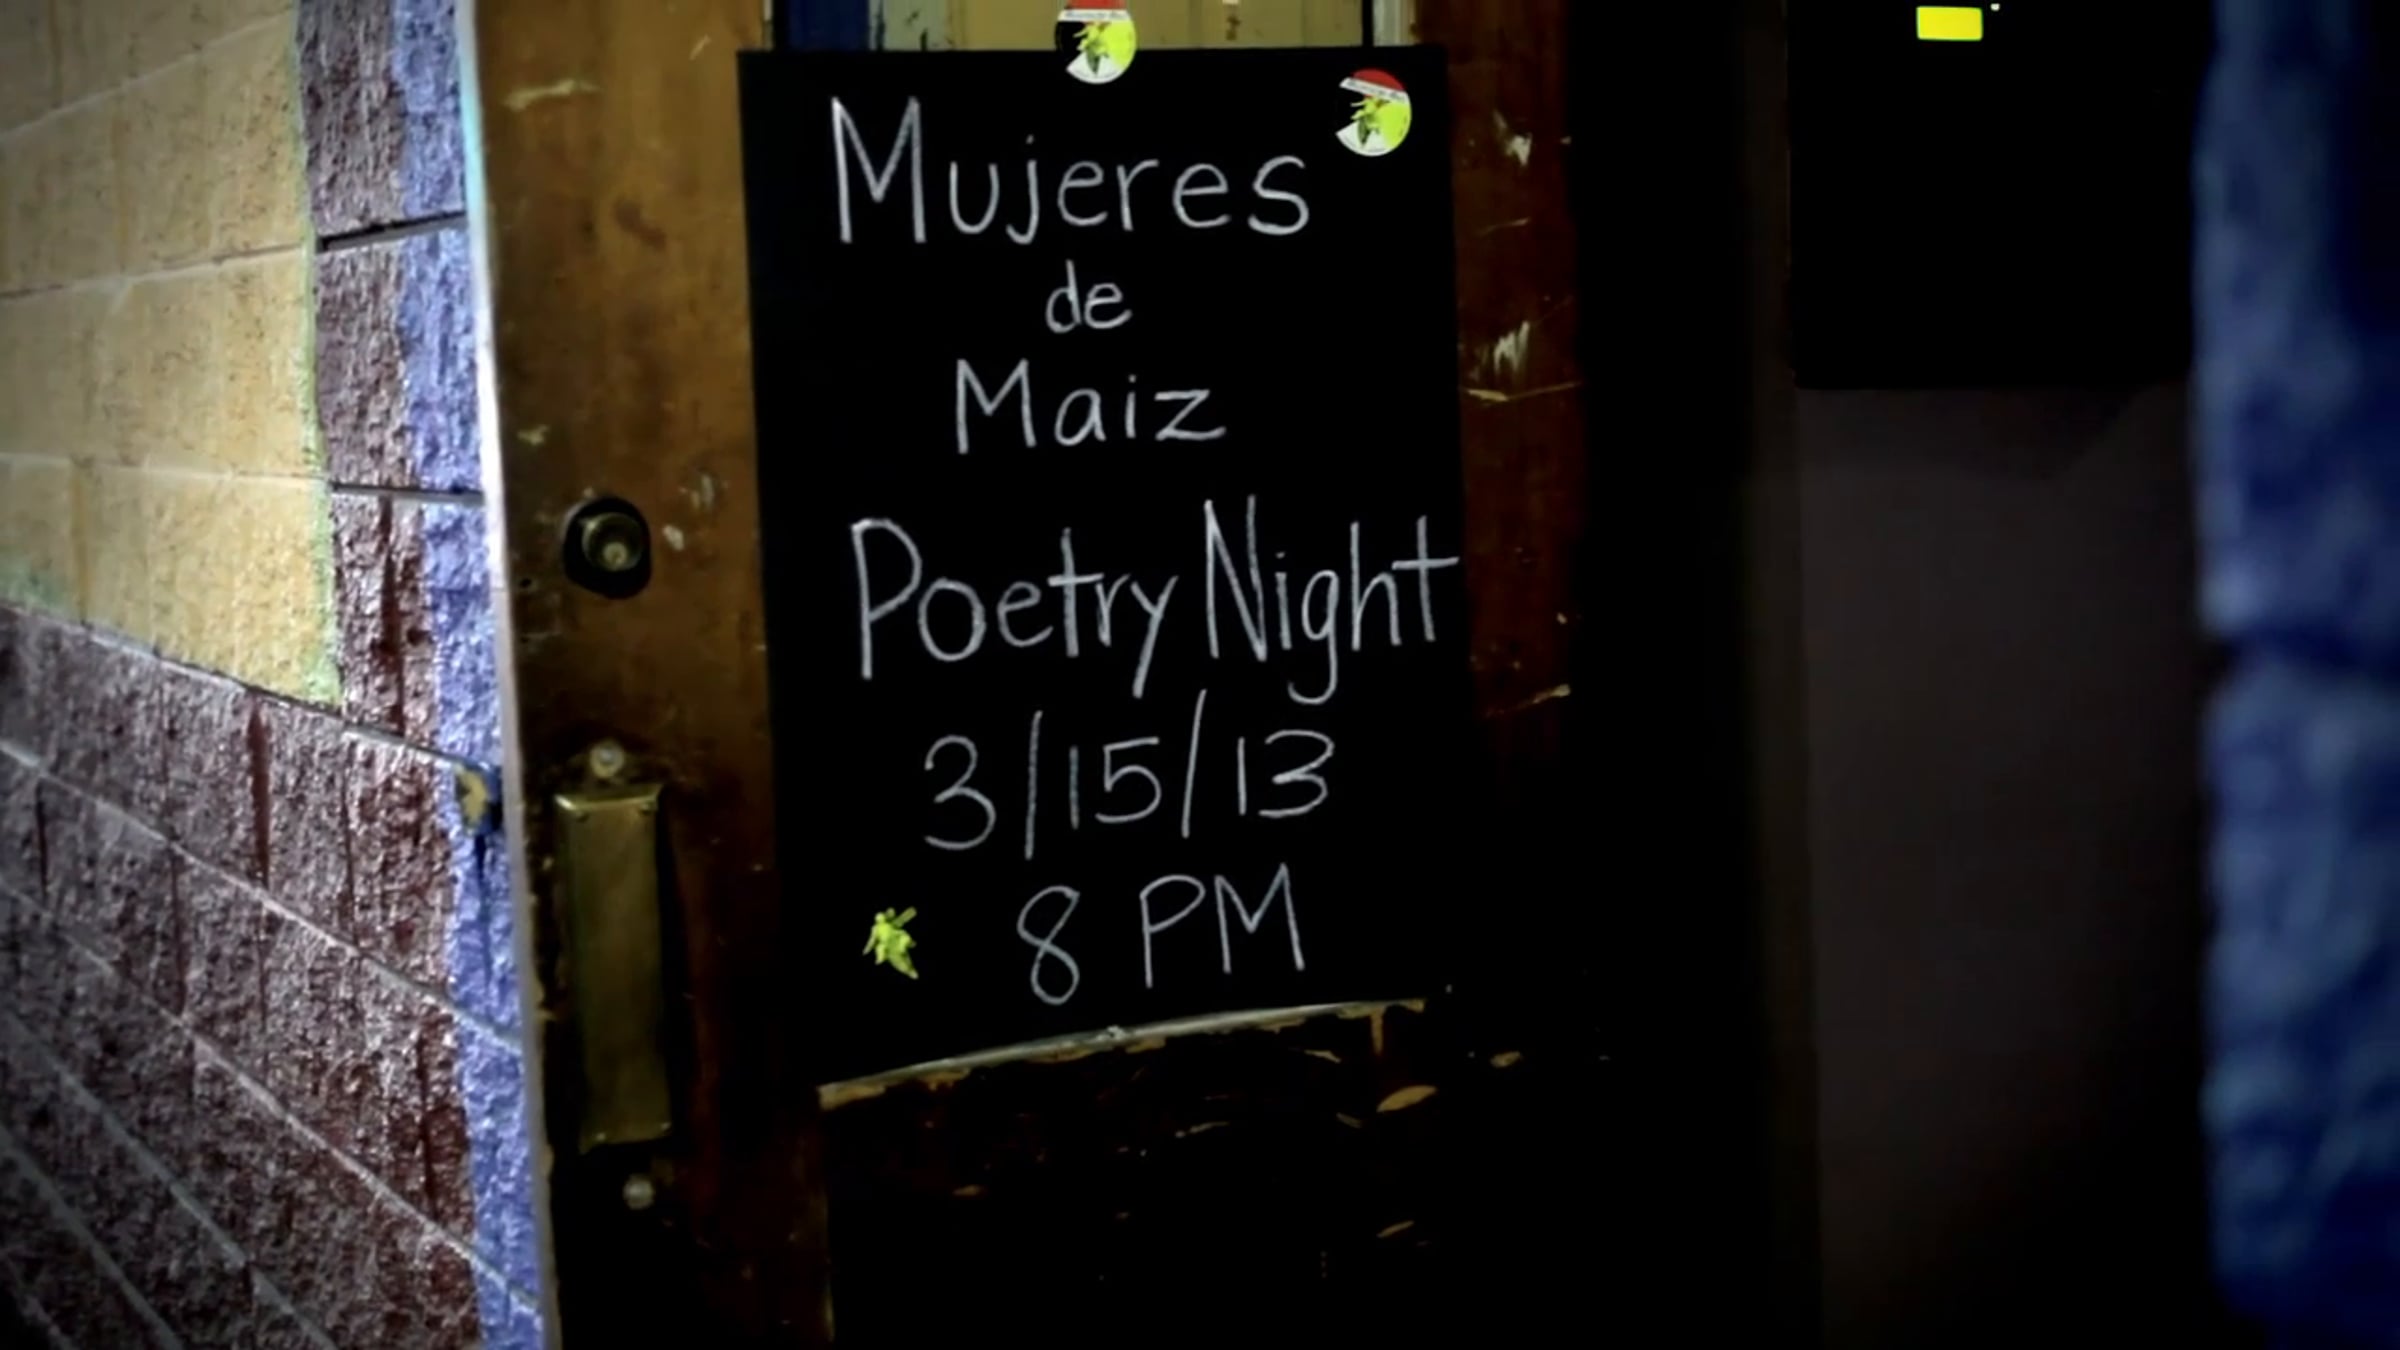 Mujeres
de
Maiz
Poetry Night
3/15/13
8 PM